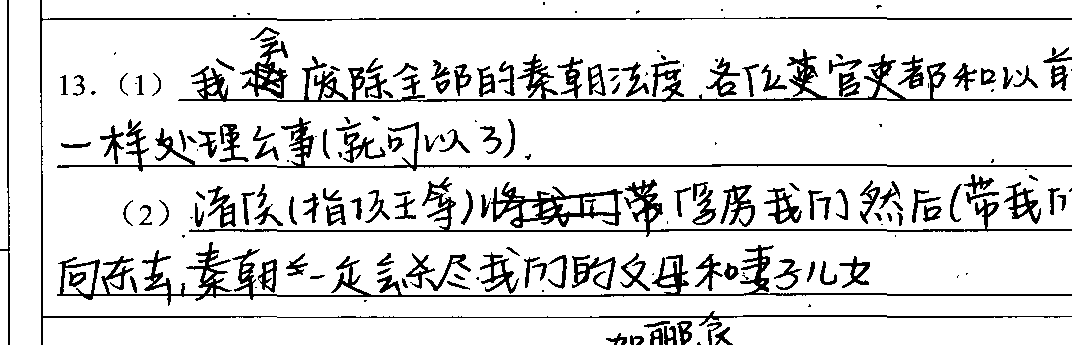 13.（1）我会废除全部的秦朝法度,各位官吏都和以前
一样处理公事(就可以了).
（2）诸侯(指项王等)俘虏我们然后(带我们
向东去,秦朝一定会杀尽我们的父母和妻子儿女
如郦食